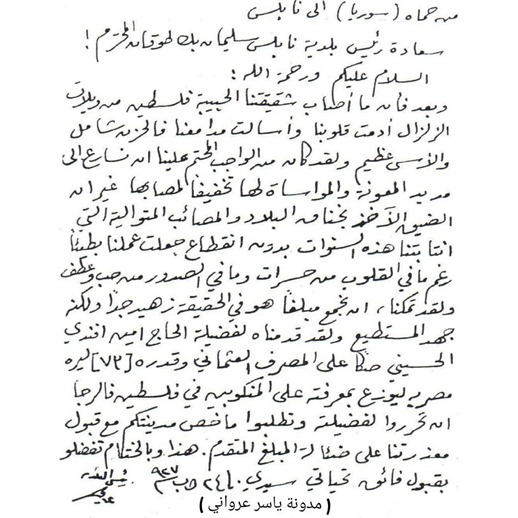 من حماه (سوريا) الى نابلس
سعادة رئيس بلدية نابلس سليمان بك طوقان المحترم !
السلام عليكم ورحمة الله :
وبعد فان ما أصاب شقيقتنا الحبيبة فلسطين من ويلات
الزلزال أدمت قلوبنا وأسالت مدامعنا فالحزن شامل
والأسى عظيم ولقد كان من الواجب المحتم علينا ان نسارع الى
مد يد المعونة والمواساة لها تخفيفا لمصابها غير ان
الضيق الآخذ بخناق البلاد والمصائب المتوالية التي
انتابتنا هذه السنوات بدون انقطاع جعلت عملنا بطيئا
رغم ما في القلوب من حسرات وما في الصدور من حب وعطف
ولقد تمكنا، ان نجمع مبلغا هو في الحقيقة زهيد جدا ولكنه
جهد المستطيع ولقد قدمناه لفضيلة الحاج امين افندي
الحسيني صكا على المصرف العثماني وقدره [٧٣] ليره
مصريه ليوزع بمعرفته على المنكوبين في فلسطين فالرجا
ان تحرروا لفضيلته وتطلبوا ما خص مدينتكم مع قبول
معذرتنا على ضئالة المبلغ المتقدم. هذا وبالختام تفضلو
بقبول فائق تحياتي سيدي. ٢٤ آب ٩٢٧
(مدونة ياسر عرواني)